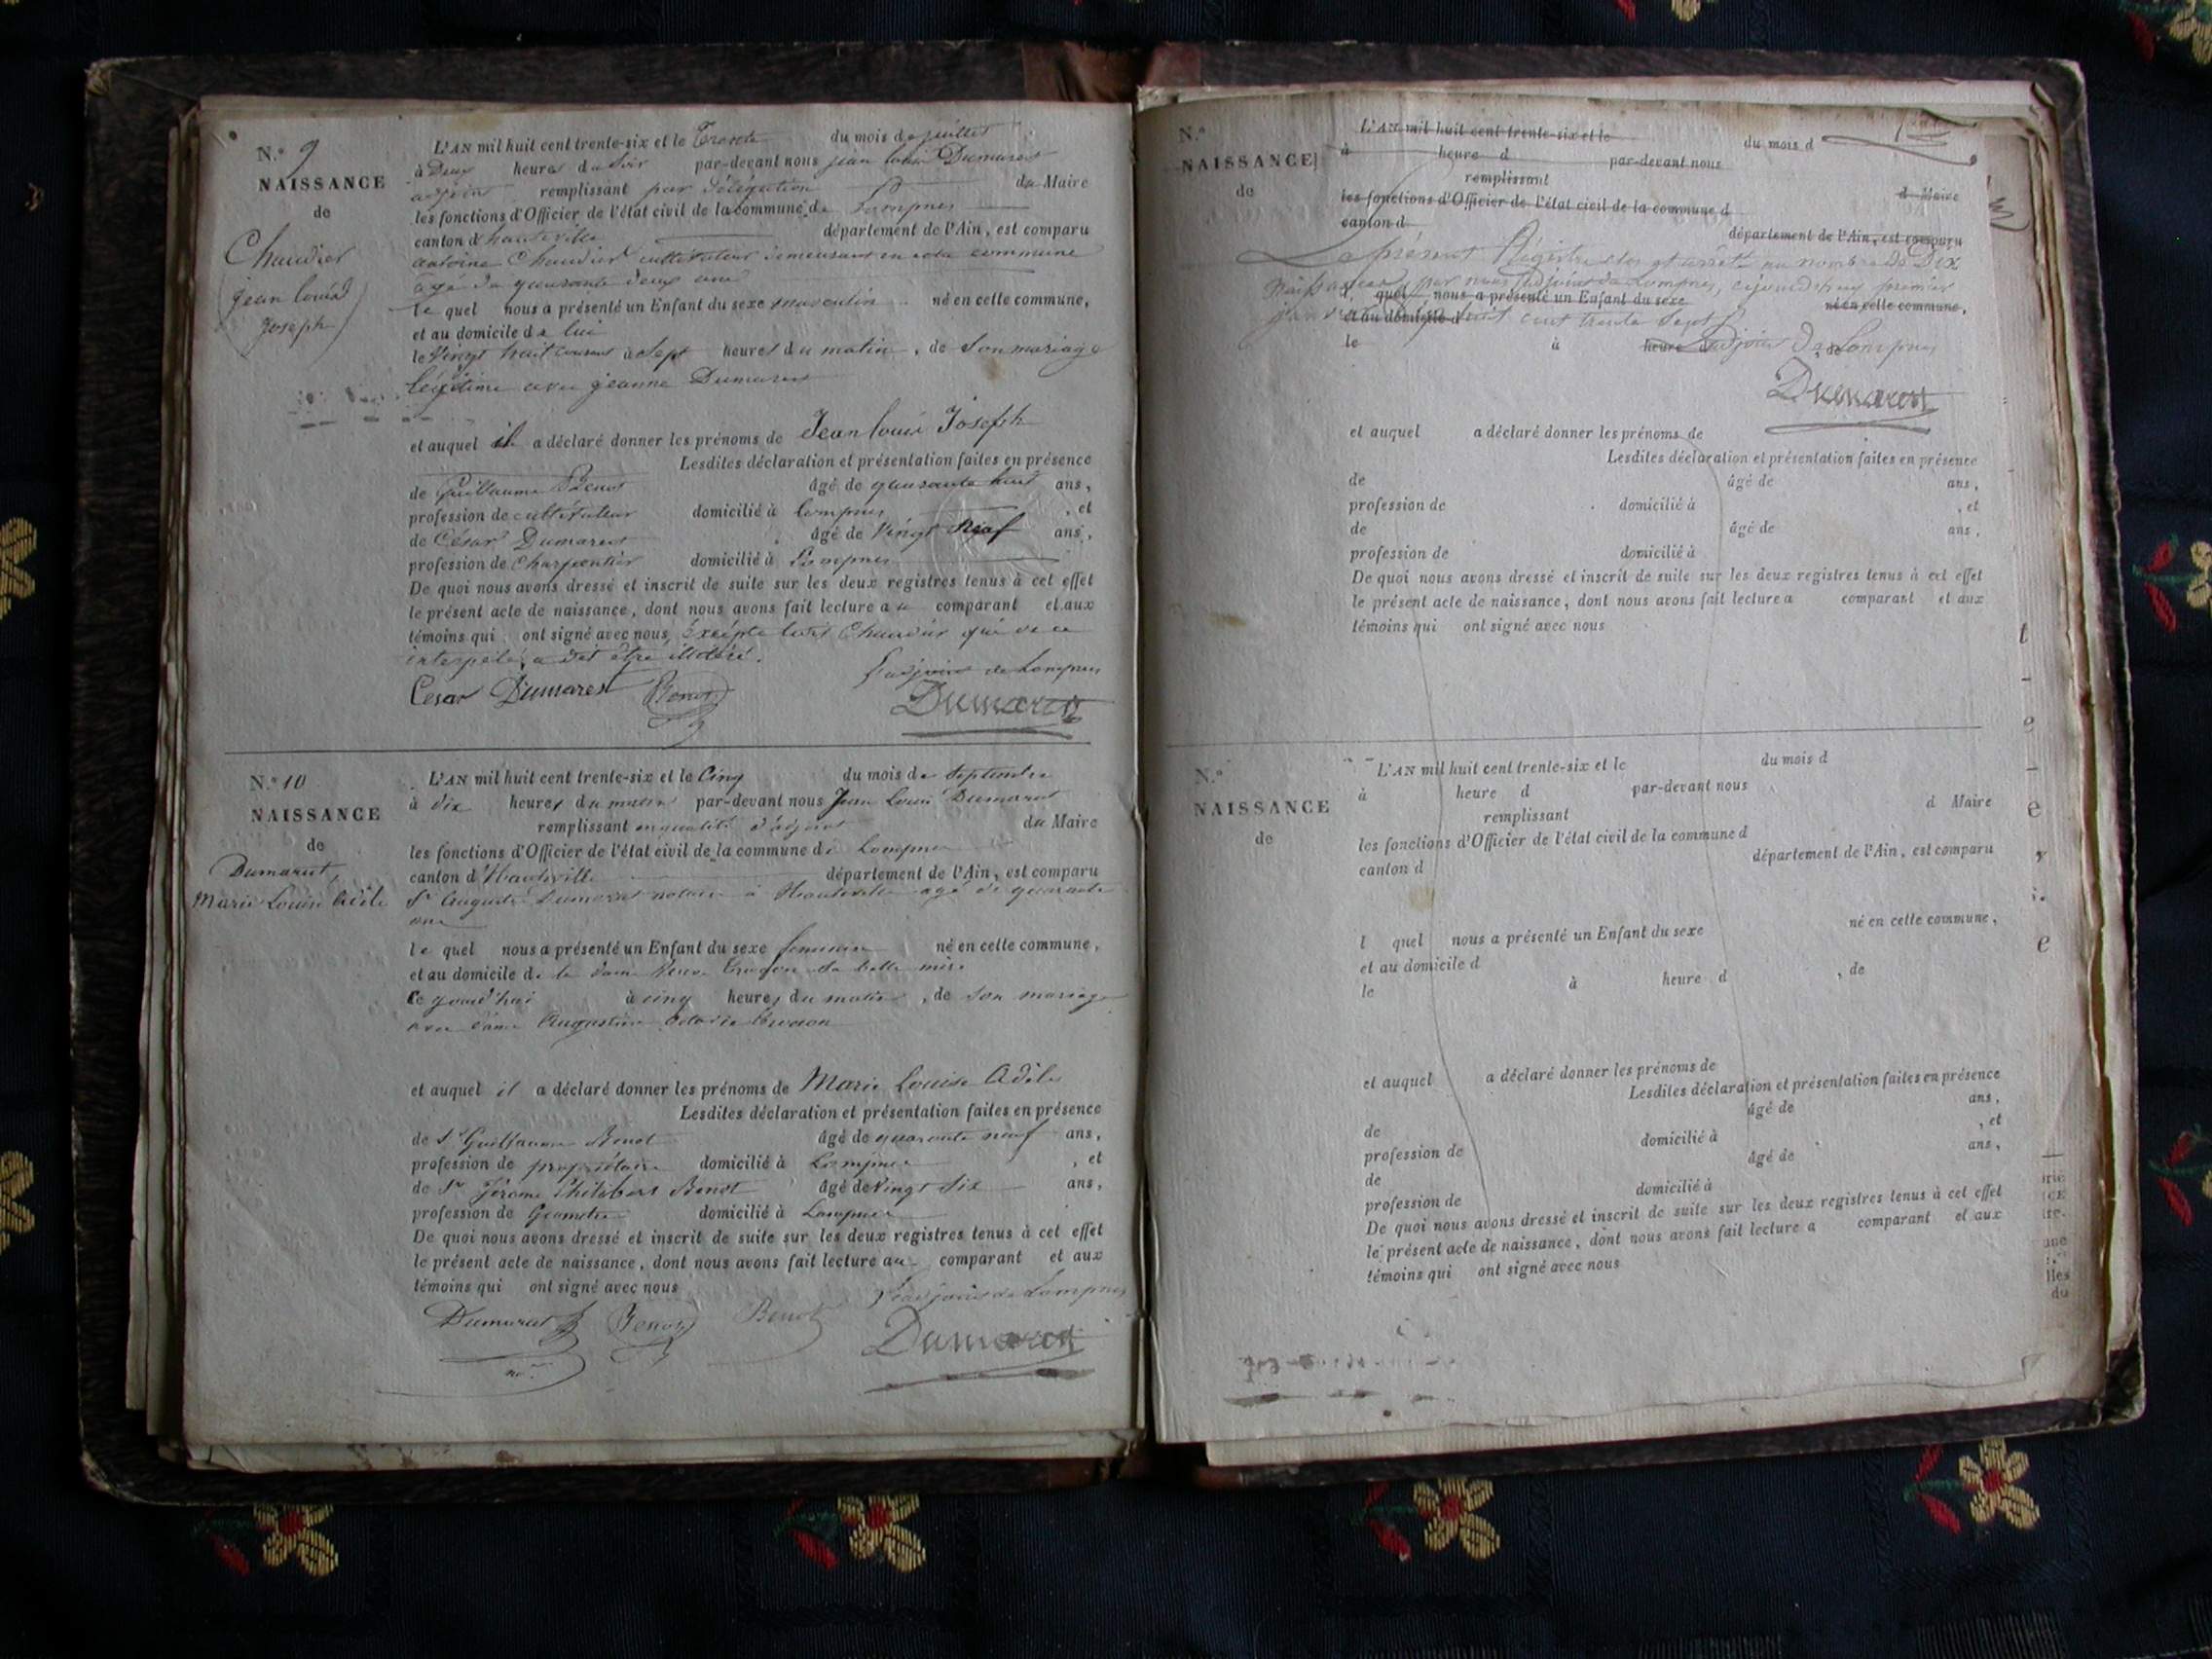 N.° 9
NAISSANCE
de
Chaudier
jean louis
joseph
L'AN mil huit cent trente-six et le Trente du mois de juillet
à Deux heures du Soir par-devant nous jean louis Dumarest
adjoint remplissant par délégation du Maire
les fonctions d'Officier de l'état civil de la commune de Lompnes
canton d'hauteville département de l'Ain, est comparu
antoine Chaudier cultivateur demeurant en cette commune
agé de quarante deux ans
le quel nous a présenté un Enfant du sexe masculin né en cette commune,
et au domicile de lui
le Vingt huit courant à Sept heures du matin, de Son mariage
légitime avec jeanne Dumarest
et auquel il a déclaré donner les prénoms de Jean louis Joseph
Lesdites déclaration et présentation faites en présence
de Guillaume Benot âgé de quarante huit ans,
profession de cultivateur domicilié à Lompnes, et
de César Dumarest âgé de Vingt Neuf ans,
profession de Charpentier domicilié à Lompnes
De quoi nous avons dressé et inscrit de suite sur les deux registres tenus à cet effet
le présent acte de naissance, dont nous avons fait lecture au comparant et aux
témoins qui ont signé avec nous, Chaudier qui de ce
interpelé, a dit être illétéré.
l'adjoint de Lompnes
Cesar Dumarest Benot Dumarest
N.° 10
NAISSANCE
de
Dumarest,
Marie Louise Adèle
L'AN mil huit cent trente-six et le Cinq du mois de Septembre
à dix heures du matin par-devant nous Jean Louis Dumarest
remplissant en qualité d'adjoint du Maire
les fonctions d'Officier de l'état civil de la commune de Lompnes
canton d'Hauteville département de l'Ain, est comparu
Sr Auguste Dumarest notaire à Hauteville agé de quarante
ans
le quel nous a présenté un Enfant du sexe feminin né en cette commune,
et au domicile de la dame Veuve sa belle mère
ce jourd'hui à cinq heures du matin, de son mariage
avec dame Augustine
et auquel il a déclaré donner les prénoms de Marie Louise Adèle
Lesdites déclaration et présentation faites en présence
de Sr Guillaume Benot âgé de quarante neuf ans,
profession de propriétaire domicilié à Lompnes, et
de Sr Jérome Philibert Benot âgé de Vingt Six ans,
profession de Géomètre domicilié à Lompnes
De quoi nous avons dressé et inscrit de suite sur les deux registres tenus à cet effet
le présent acte de naissance, dont nous avons fait lecture au comparant et aux
témoins qui ont signé avec nous
l'adjoint de Lompnes
Dumarest Benot Benot Dumarest
N.°
NAISSANCE
de
L'AN mil huit cent trente-six et le du mois d
à heure d par-devant nous
remplissant d Maire
les fonctions d'Officier de l'état civil de la commune d
canton d département de l'Ain, est comparu
Le présent Régistre clos et arrêté au nombre de Dix
Naissances par nous adjoint de Lompnes, cejourd'huy premier
l quel nous a présenté un Enfant du sexe né en cette commune,
janvier mil huit cent trente Sept
et au domicile d
le à heure d , de
L'adjoint de Lompnes
Dumarest
et auquel a déclaré donner les prénoms de
Lesdites déclaration et présentation faites en présence
de âgé de ans,
profession de domicilié à , et
de âgé de ans,
profession de domicilié à
De quoi nous avons dressé et inscrit de suite sur les deux registres tenus à cet effet
le présent acte de naissance, dont nous avons fait lecture a comparant et aux
témoins qui ont signé avec nous
N.°
NAISSANCE
de
L'AN mil huit cent trente-six et le du mois d
à heure d par-devant nous
remplissant d Maire
les fonctions d'Officier de l'état civil de la commune d
canton d département de l'Ain, est comparu
l quel nous a présenté un Enfant du sexe né en cette commune,
et au domicile d
le à heure d , de
et auquel a déclaré donner les prénoms de
Lesdites déclaration et présentation faites en présence
de âgé de ans,
profession de domicilié à , et
de âgé de ans,
profession de domicilié à
De quoi nous avons dressé et inscrit de suite sur les deux registres tenus à cet effet
le présent acte de naissance, dont nous avons fait lecture a comparant et aux
témoins qui ont signé avec nous